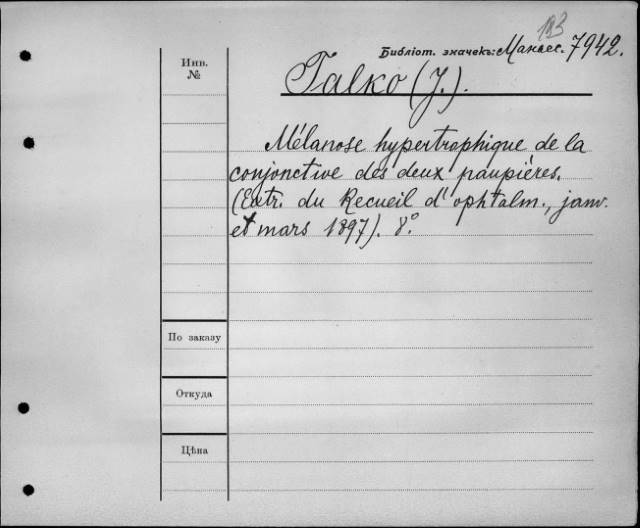 183
Библіот. значекъ: Манасс. 7942.
Инв.
№
Talko (J.).
Mélanose hypertrophique de la
conjonctive des deux paupiéres.
(Extr. du Recueil d'ophtalm., janv.
et mars 1897). 8°.
По заказу
Откуда
Цѣна